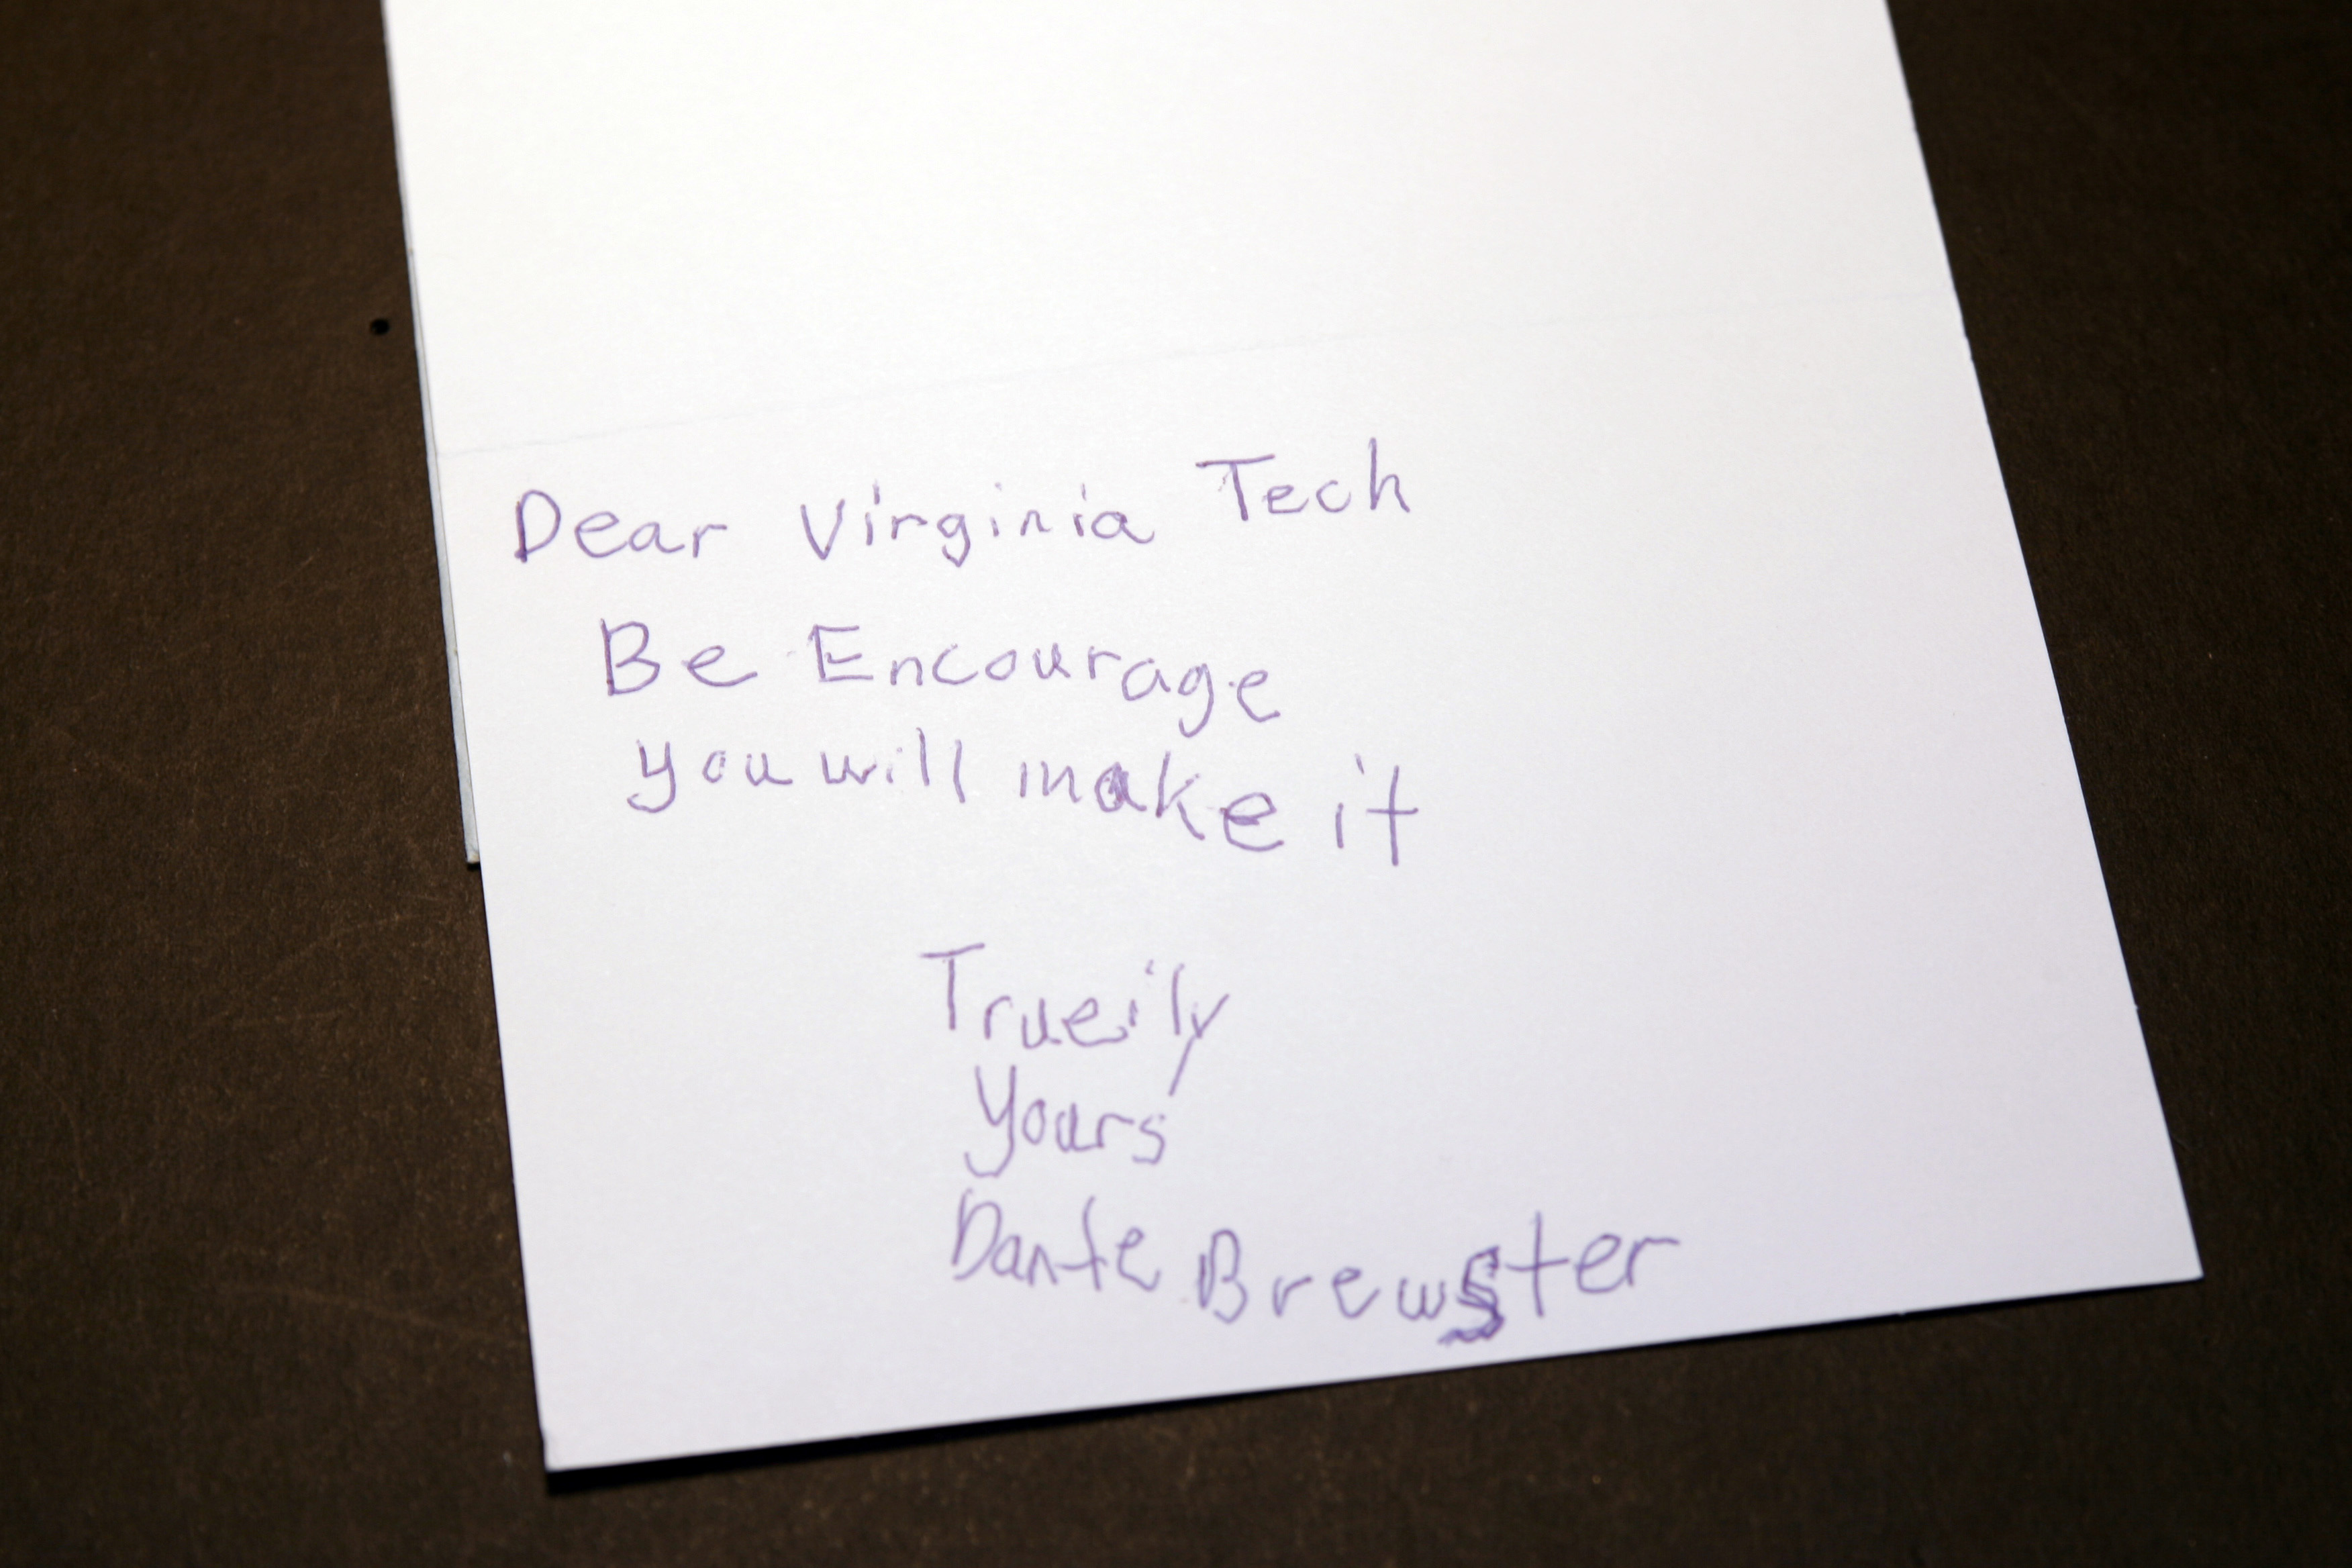 Dear Virginia Tech
Be Encourage
you will make it
Trueily
Yours
Dante Brewster